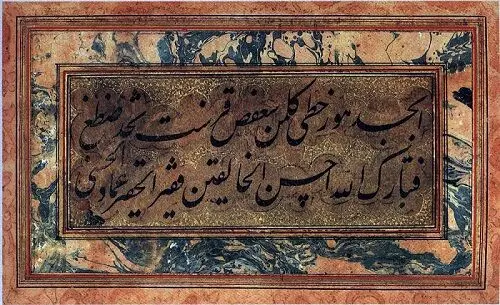 ابجد هوز حطی کلمن سعفص قرشت ثخذ ضظغ
فتبارک الله احسن الخالقین مشقه الحقیر عماد الحسنی